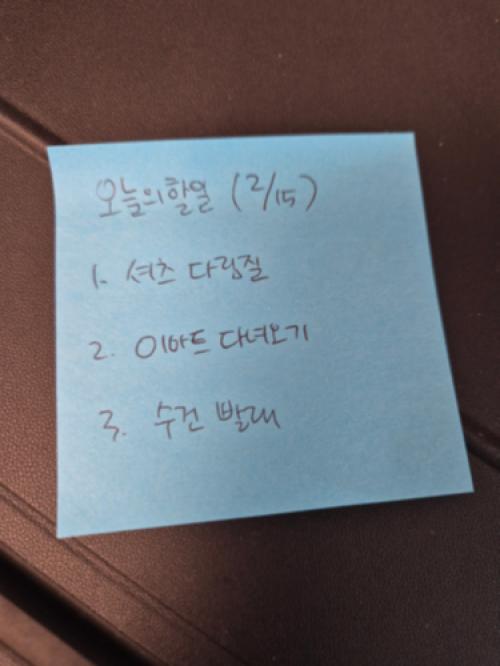 오늘의할일 (2/15)
1. 셔츠 다림질
2. 이마트 다녀오기
3. 수건 빨래